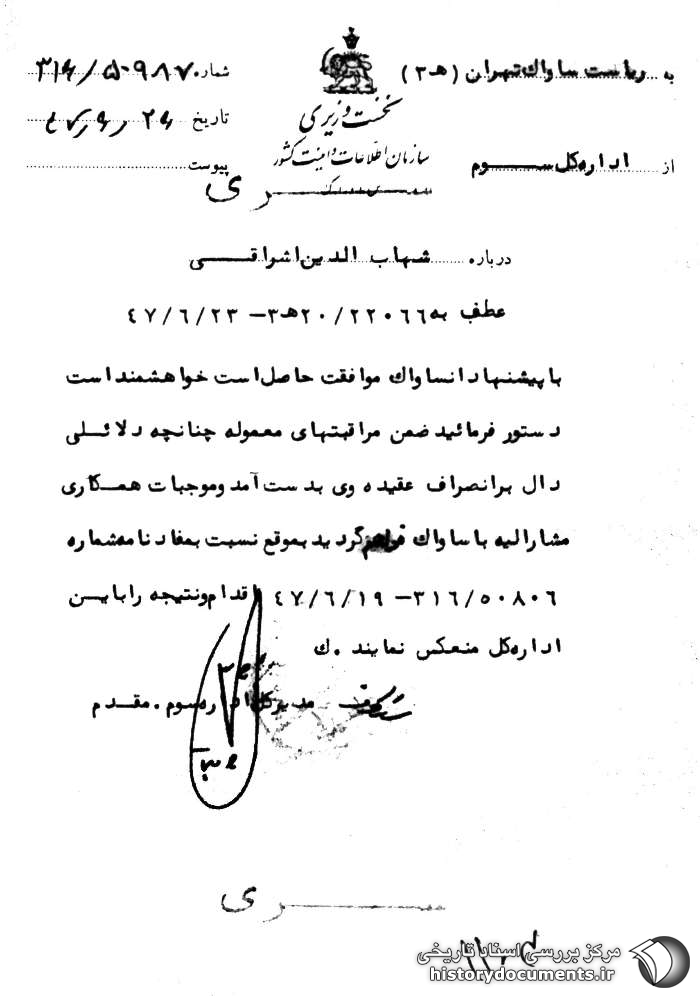 به ریاست ساواک تهران (ه‍ ۳)
نخست وزیری
سازمان اطلاعات و امنیت کشور
شماره ۳۱۶/۵۰۹۸۷
تاریخ ۴۷٫۹٫۲۶
پیوست
از اداره کل سوم
سری
درباره شهاب الدین اشراقی
عطف به ۲۰/۲۲۰۶۶ه‍ ۳ – ۴۷/۶/۲۳
با پیشنهاد آنساواک موافقت حاصل است خواهشمند است
دستور فرمائید ضمن مراقبتهای معموله چنانچه دلائلی
دال بر انصراف عقیده وی بدست آمد و موجبات همکاری
مشارالیه با ساواک فراهم گردید بموقع نسبت بمفاد نامه شماره
۳۱۶/۵۰۸۰۶ – ۴۷/۶/۱۹ اقدام و نتیجه را باین
اداره کل منعکس نمایند . ك
مدیرکل اداره سوم . مقدم
سری
مرکز بررسی اسناد تاریخی
historydocuments.ir